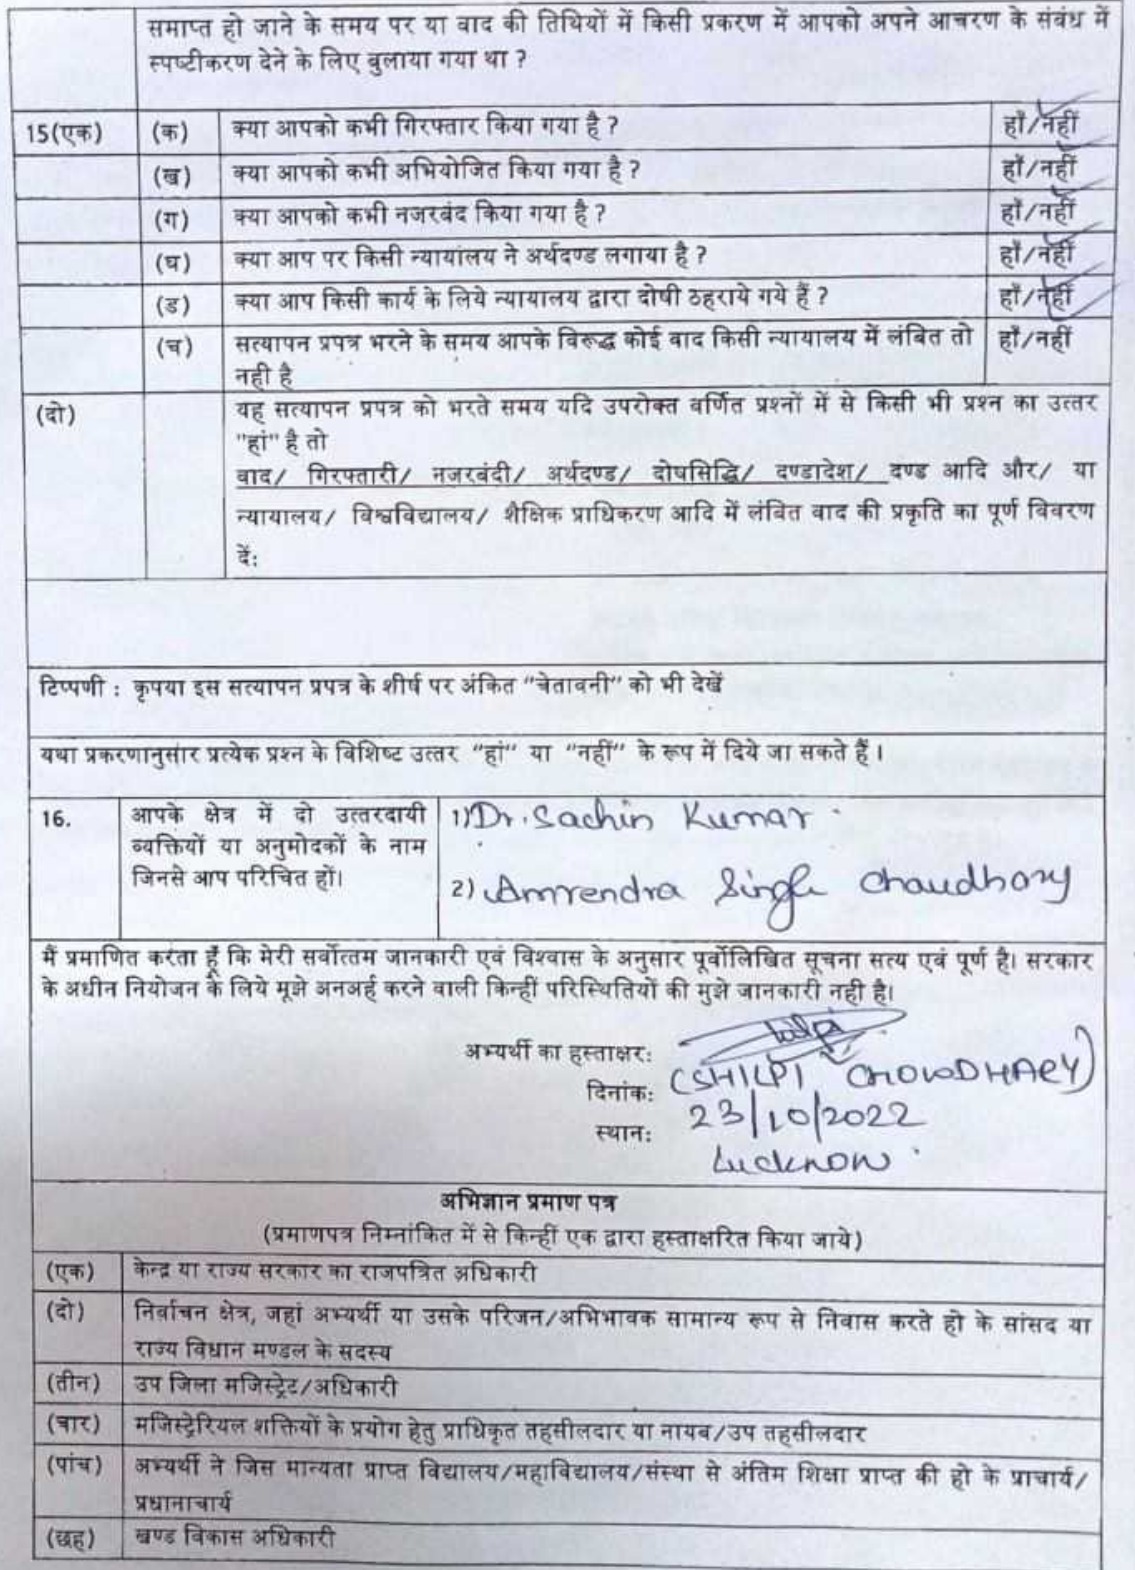 समाप्त हो जाने के समय पर या वाद की तिथियों में किसी प्रकरण में आपको अपने आचरण के संबंध में
स्पष्टीकरण देने के लिए बुलाया गया था ?
15(एक) (क) क्या आपको कभी गिरफ्तार किया गया है ? हाँ/नहीं
(ख) क्या आपको कभी अभियोजित किया गया है ? हाँ/नहीं
(ग) क्या आपको कभी नजरबंद किया गया है ? हाँ/नहीं
(घ) क्या आप पर किसी न्यायांलय ने अर्थदण्ड लगाया है ? हाँ/नहीं
(ड) क्या आप किसी कार्य के लिये न्यायालय द्वारा दोषी ठहराये गये हैं ? हाँ/नहीं
(च) सत्यापन प्रपत्र भरने के समय आपके विरूद्ध कोई वाद किसी न्यायालय में लंबित तो हाँ/नहीं
नही है
(दो) यह सत्यापन प्रपत्र को भरते समय यदि उपरोक्त वर्णित प्रश्नों में से किसी भी प्रश्न का उत्तर
"हां" है तो
वाद/ गिरफ्तारी/ नजरबंदी/ अर्थदण्ड/ दोषसिद्धि/ दण्डादेश/ दण्ड आदि और/ या
न्यायालय/ विश्वविद्यालय/ शैक्षिक प्राधिकरण आदि में लंबित वाद की प्रकृति का पूर्ण विवरण
दें:
टिप्पणी : कृपया इस सत्यापन प्रपत्र के शीर्ष पर अंकित "चेतावनी" को भी देखें
यथा प्रकरणानुसार प्रत्येक प्रश्न के विशिष्ट उत्तर "हां" या "नहीं" के रूप में दिये जा सकते हैं ।
16. आपके क्षेत्र में दो उत्तरदायी 1) Dr. Sachin Kumar
व्यक्तियों या अनुमोदकों के नाम
जिनसे आप परिचित हों। 2) Amrendra Singh Chaudhary
मैं प्रमाणित करता हूँ कि मेरी सर्वोत्तम जानकारी एवं विश्वास के अनुसार पूर्वोलिखित सूचना सत्य एवं पूर्ण है। सरकार
के अधीन नियोजन के लिये मूझे अनअर्ह करने वाली किन्हीं परिस्थितियों की मुझे जानकारी नही है।
अभ्यर्थी का हस्ताक्षर:
(SHILPI CHOWDHARY)
दिनांक: 23/10/2022
स्थान: Lucknow
अभिज्ञान प्रमाण पत्र
(प्रमाणपत्र निम्नांकित में से किन्हीं एक द्वारा हस्ताक्षरित किया जाये)
(एक) केन्द्र या राज्य सरकार का राजपत्रित अधिकारी
(दो) निर्वाचन क्षेत्र, जहां अभ्यर्थी या उसके परिजन/अभिभावक सामान्य रूप से निवास करते हो के सांसद या
राज्य विधान मण्डल के सदस्य
(तीन) उप जिला मजिस्ट्रेट/अधिकारी
(चार) मजिस्ट्रेरियल शक्तियों के प्रयोग हेतु प्राधिकृत तहसीलदार या नायब/उप तहसीलदार
(पांच) अभ्यर्थी ने जिस मान्यता प्राप्त विद्यालय/महाविद्यालय/संस्था से अंतिम शिक्षा प्राप्त की हो के प्राचार्य/
प्रधानाचार्य
(छह) खण्ड विकास अधिकारी